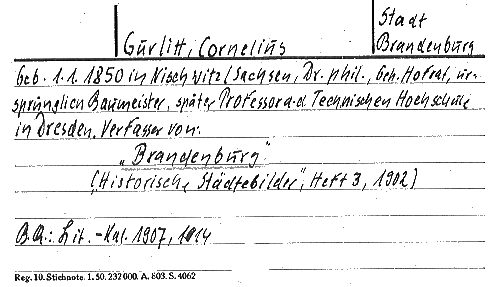 Stadt
Gurlitt, Cornelius Brandenburg
Geb. 1.1.1850 in Nischwitz/Sachsen, Dr. phil., Geh. Hofrat, ur-
sprünglich Baumeister, später Professor a.d Technischen Hochschule
in Dresden. Verfasser von:
"Brandenburg"
("Historische Städtebilder", Heft 3, 1902)
B.A.: Lit.-Kal. 1907, 1914
Reg. 10. Stichnote. 1. 50. 232 000. A. 803. S. 4062